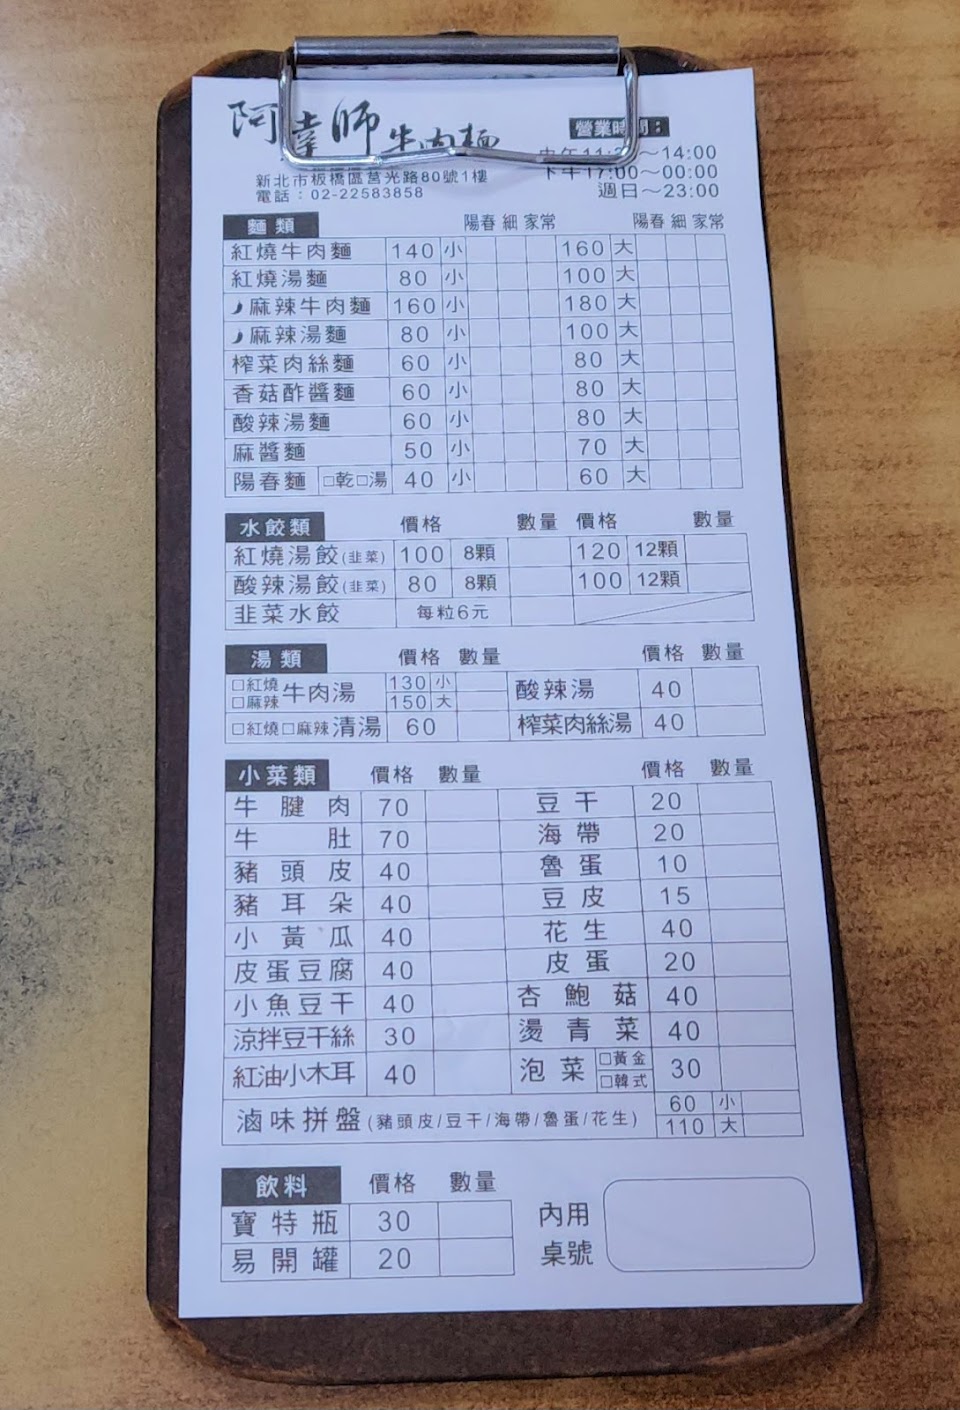 阿達師牛肉麵
營業時間：
中午11: ～14:00
下午17:00～00:00
週日～23:00
新北市板橋區莒光路80號1樓
電話：02-22583858
麵類 陽春 細 家常 陽春 細 家常
紅燒牛肉麵 140 小 160 大
紅燒湯麵 80 小 100 大
麻辣牛肉麵 160 小 180 大
麻辣湯麵 80 小 100 大
榨菜肉絲麵 60 小 80 大
香菇酢醬麵 60 小 80 大
酸辣湯麵 60 小 80 大
麻醬麵 50 小 70 大
陽春麵 □乾□湯 40 小 60 大
水餃類 價格 數量 價格 數量
紅燒湯餃(韭菜) 100 8顆 120 12顆
酸辣湯餃(韭菜) 80 8顆 100 12顆
韭菜水餃 每粒6元
湯類 價格 數量 價格 數量
□紅燒 □麻辣 牛肉湯 130 小 酸辣湯 40
150 大
□紅燒□麻辣清湯 60 榨菜肉絲湯 40
小菜類 價格 數量 價格 數量
牛腱肉 70 豆干 20
牛肚 70 海帶 20
豬頭皮 40 魯蛋 10
豬耳朵 40 豆皮 15
小黃瓜 40 花生 40
皮蛋豆腐 40 皮蛋 20
小魚豆干 40 杏鮑菇 40
涼拌豆干絲 30 燙青菜 40
紅油小木耳 40 泡菜 □黃金 □韓式 30
滷味拼盤(豬頭皮/豆干/海帶/魯蛋/花生) 60 小
110 大
飲料 價格 數量
寶特瓶 30
易開罐 20
內用
桌號